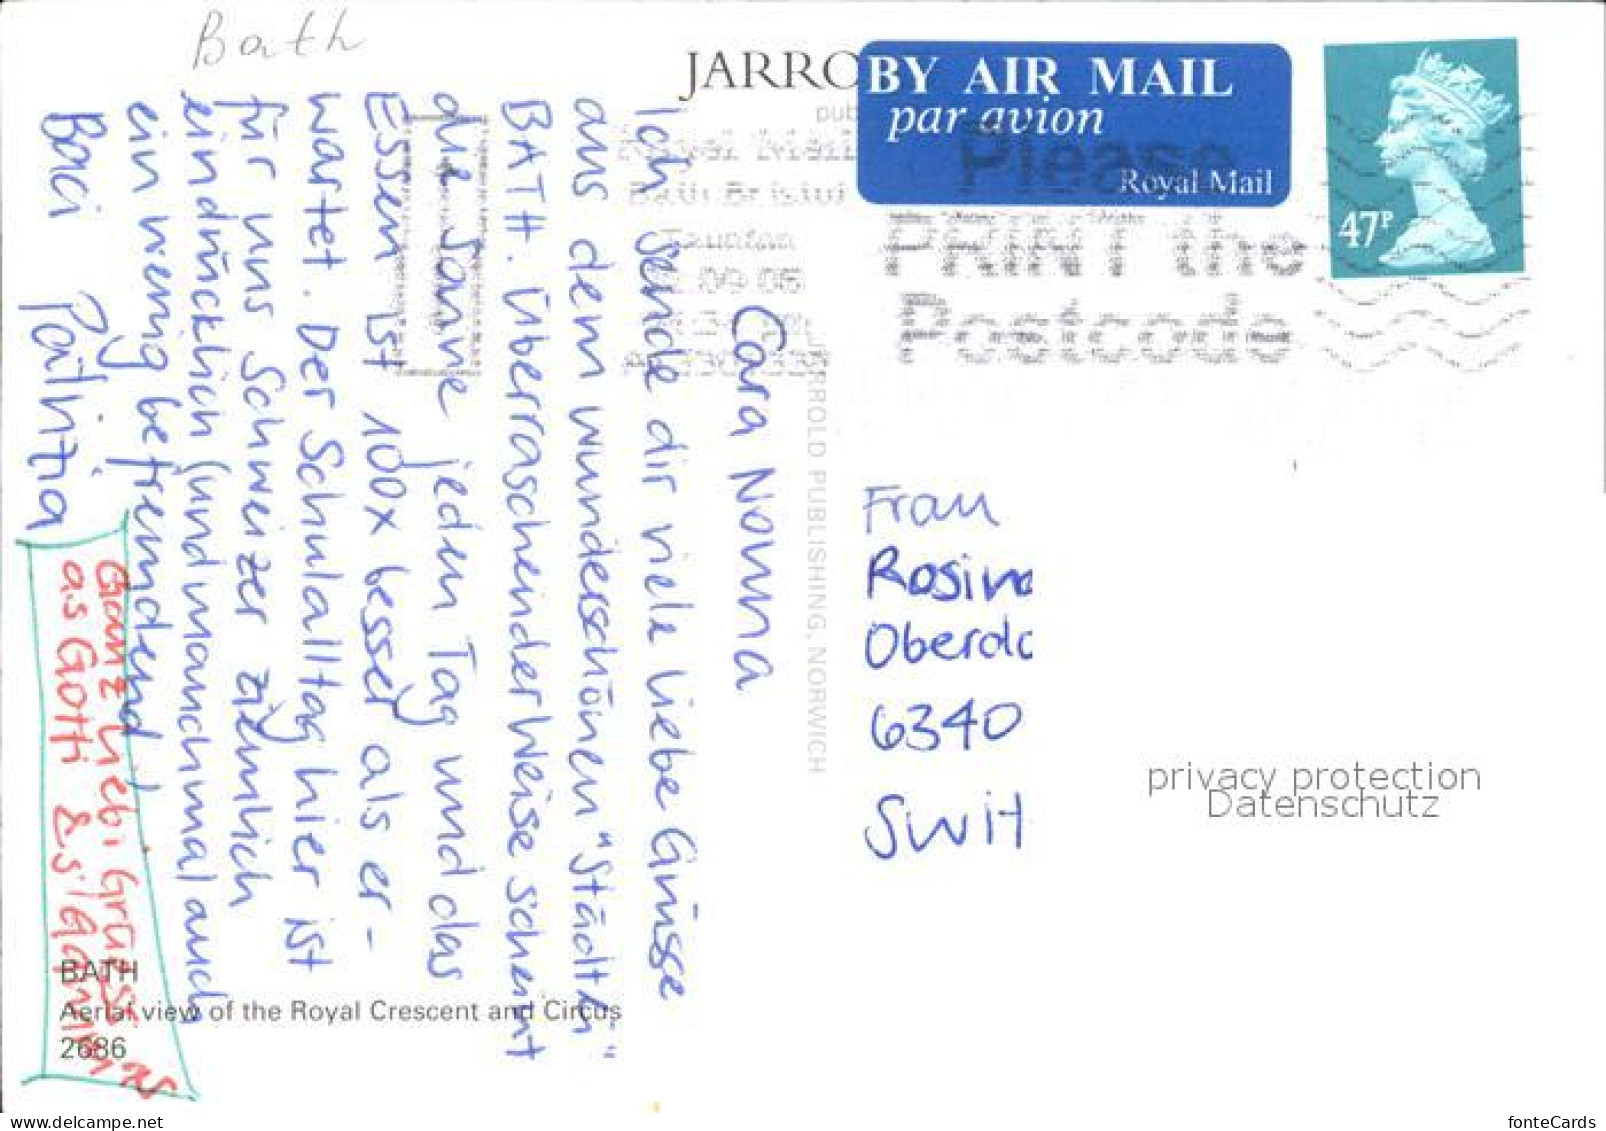 Bath
JARRO
pub
BY AIR MAIL
par avion
Royal Mail
47P
Royal Mail
Bath Bristol
Taunton
Please
PRINT the
Postcode
Cara Nonna
Ich sende dir viele liebe Grüsse
aus dem wunderschönen "Städtli"
BATH. Überraschender Weise scheint
die Sonne jeden Tag und das
Essen ist 100x besser als er-
wartet. Der Schulalltag hier ist
für uns Schweizer ziemlich
eindrücklich (und manchmal auch
ein wenig befremdend)
Baci Patrizia
Ganz liebi Grüessli
as Gotti & s'
JARROLD PUBLISHING, NORWICH
Frau
Rosina
Oberdo
6340
Swit
privacy protection
Datenschutz
BATH
Aerial view of the Royal Crescent and Circus
2686
www.delcampe.net
fonteCards